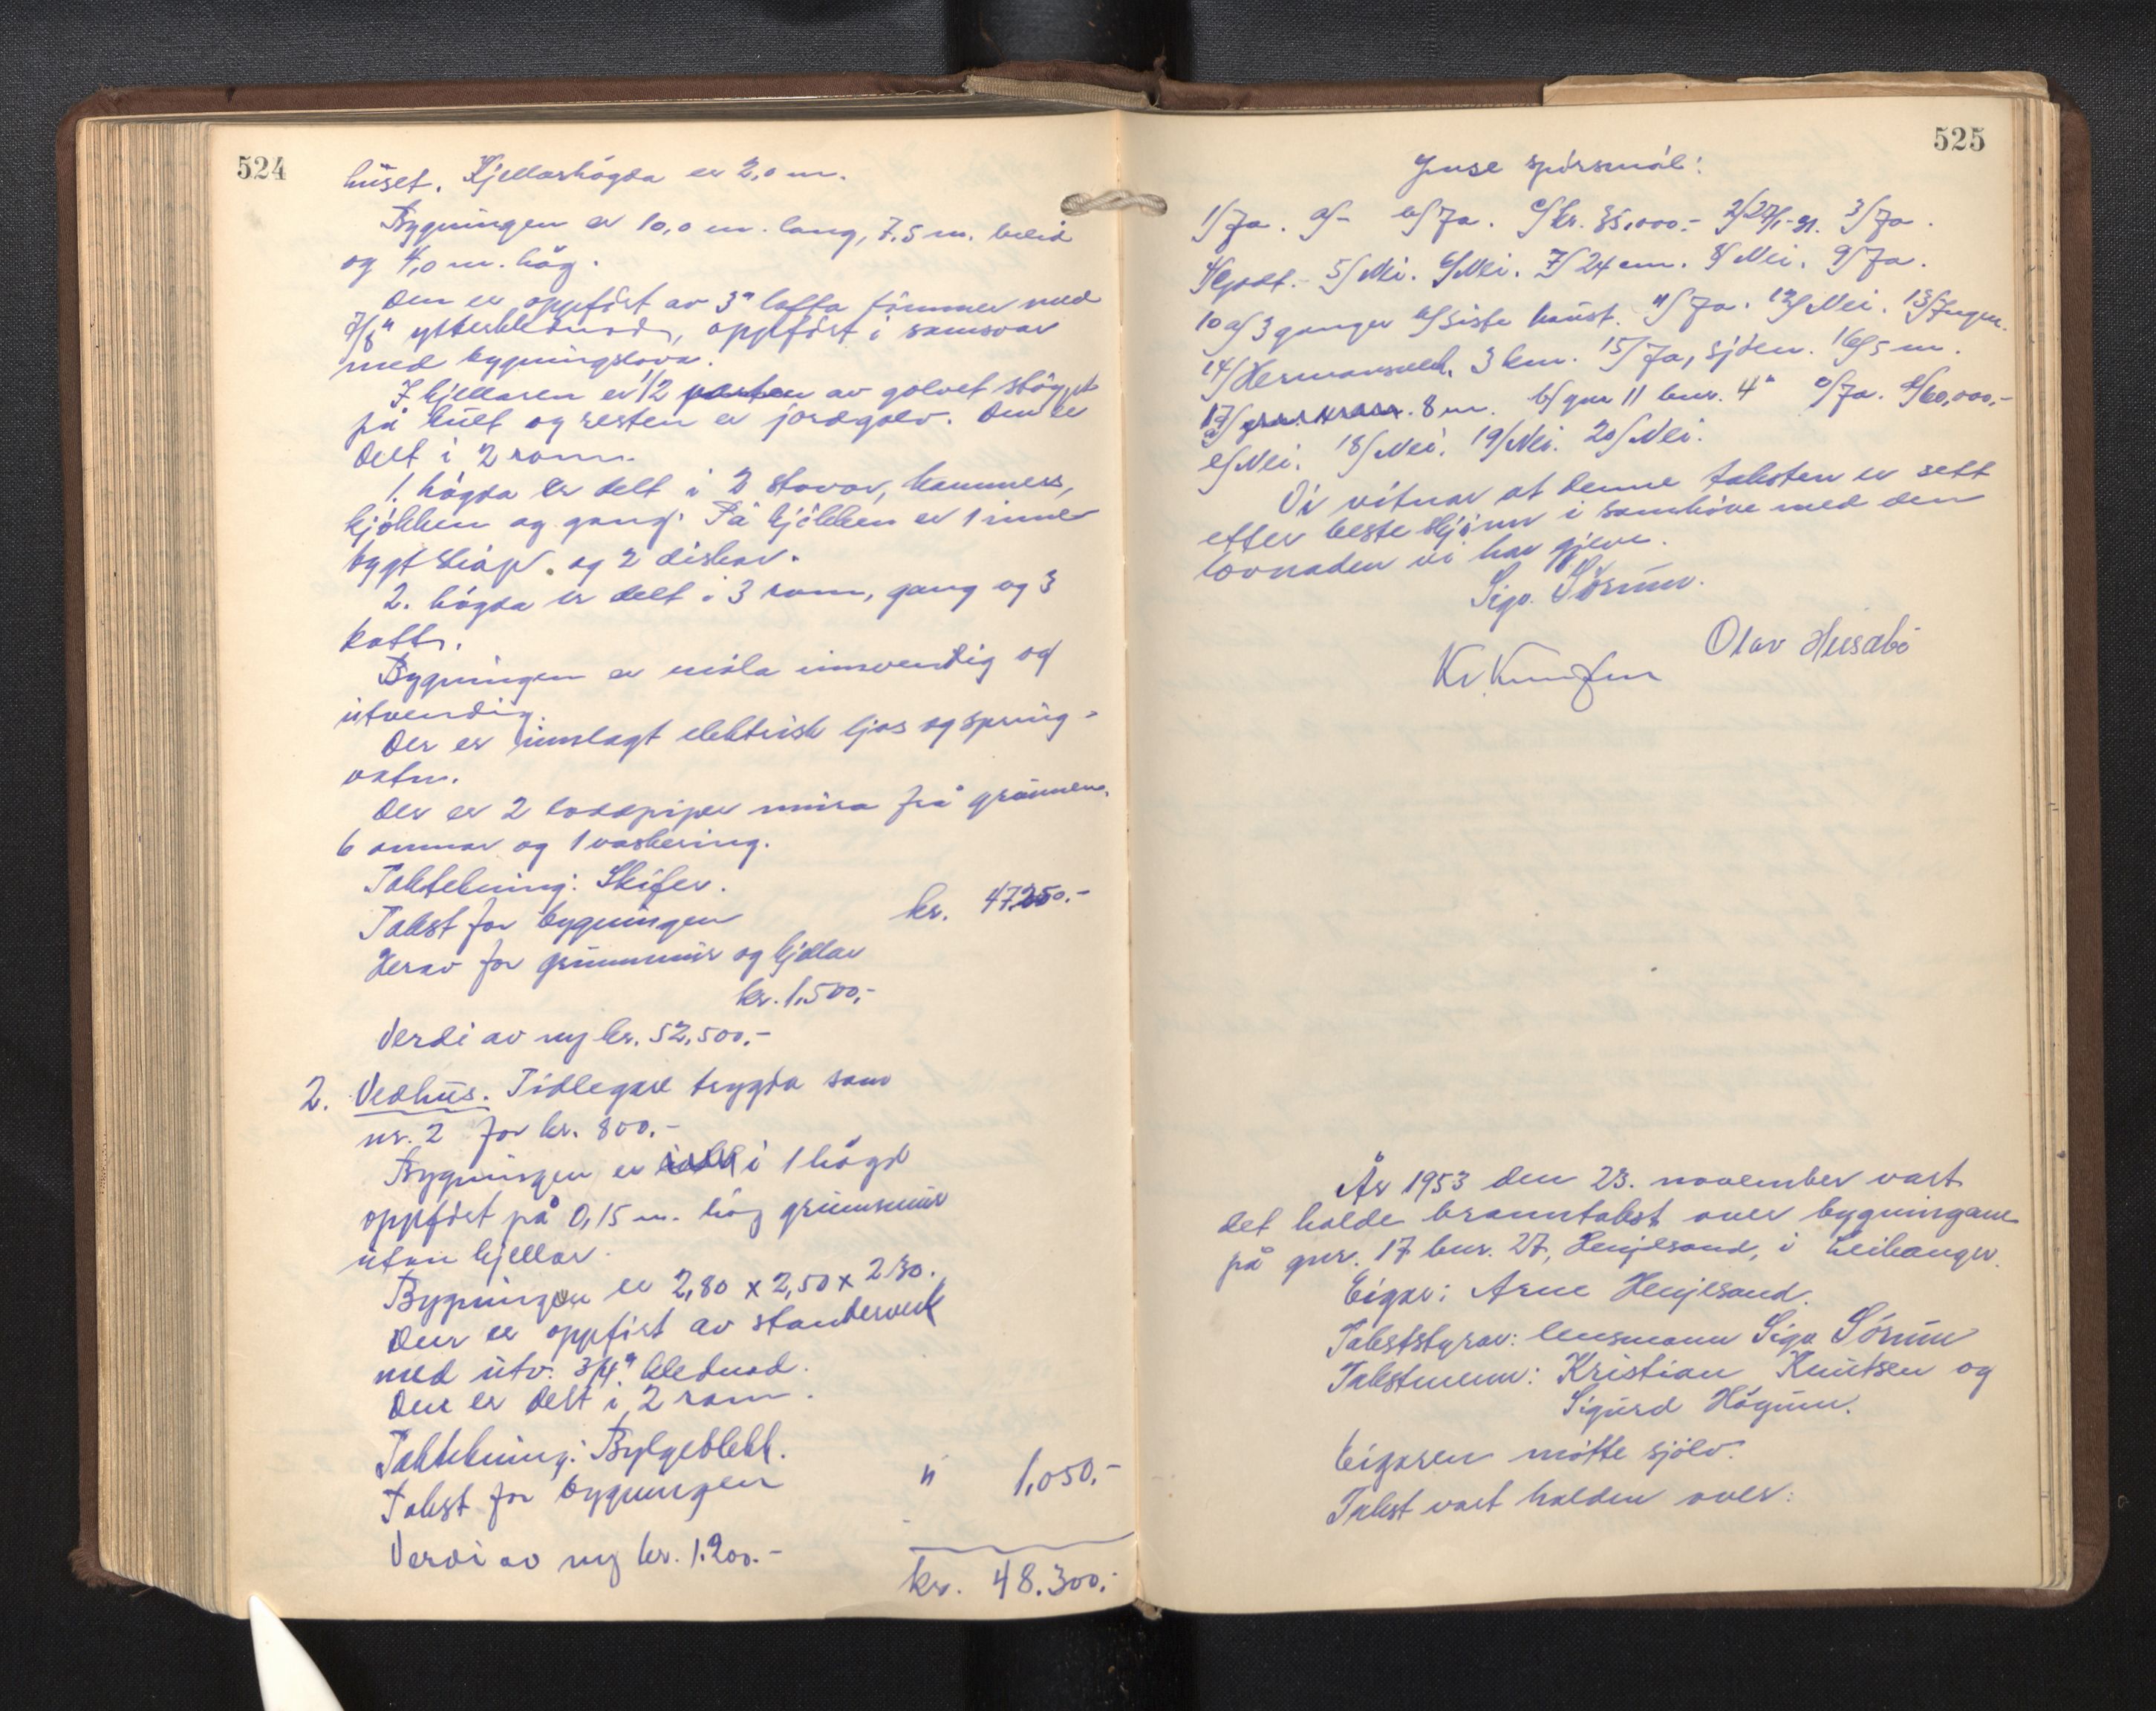 524
huset. Kjellarhögda er 2,0 m.
Bygningen er 10,0 m. lang, 7,5 m. breid
og 4,0 m. hög.
Den er oppført av 3" lafta tömmer med
7/8" ytterklednad, oppført i samsvar
med bygningslova.
I kjellaren er 1/2 parten av golvet stöypt
på kult og resten er jordgolv. Den er
delt i 2 rom.
1. högda er delt i 2 stovor, kammers,
kjökken og gang. På kjökken er 1 inne-
bygt skåp og 2 diskar.
2. högda er delt i 3 rom, gang og 3
kott.
Bygningen er måla innvendig og
utvendig.
Der er innlagt elektrisk ljos og spring-
vatn.
Der er 2 loddpiper mura frå grunnen,
6 omnar og 1 vaskering.
Taktekning: Skifer.
Takst for bygningen kr. 47.250.-
Herav for grunnmur og kjellar
kr. 1.500,-
Verdi av ny kr. 52.500.-
2. Vedhus. Tidlegare trygda som
nr. 2 for kr. 800.-
Bygningen er i 1 högd
oppført på 0,15 m. hög grunnmur
utan kjellar.
Bygningen er 2,80 x 2,50 x 2,30.
Den er oppført av standerverk
med utv. 3/4" klednad.
Den er delt i 2 rom.
Taktekning: Bylgeblekk.
Takst for bygningen " 1,050.-
Verdi av ny kr. 1.200.-
kr. 48.300.-
525
Ymse spörsmål:
1/ Ja. a/- b/ Ja. c/ kr. 35.000.- 3/ Ja.
5/ Nei. 6/ Nei. 7/ 24 cm. 8/ Nei. 9/ Ja.
10 a/ 3 ganger b/ siste haust. 11/ Ja. 12/ Nei. 13/ Ingen.
14/ Hermansverk, 3 km. 15/ Ja, sjöen. 16/ 5 m.
17/ a/ 8 m. b/ gnr 11 bnr. 4 c/ Ja. d/ 60,000,-
e/ Nei. 18/ Nei. 19/ Nei. 20/ Nei.
Vi vitnar at denne taksten er sett
etter beste skjönn i samhöve med den
lovnaden vi har gjeve.
Sigv. Sörum.
Olav Husabö
Kr. Knutsen
År 1953 den 23. november vart
det halde branntakst over bygningane
på gnr. 17 bnr. 27, Henjesand, i Leikanger.
Eigar: Arne Henjesand.
Takststyrar: lensmann Sigv. Sörum
Takstmenn: Kristian Knutsen og
Sigurd Högum.
Eigaren møtte sjölv.
Takst vart halden over: